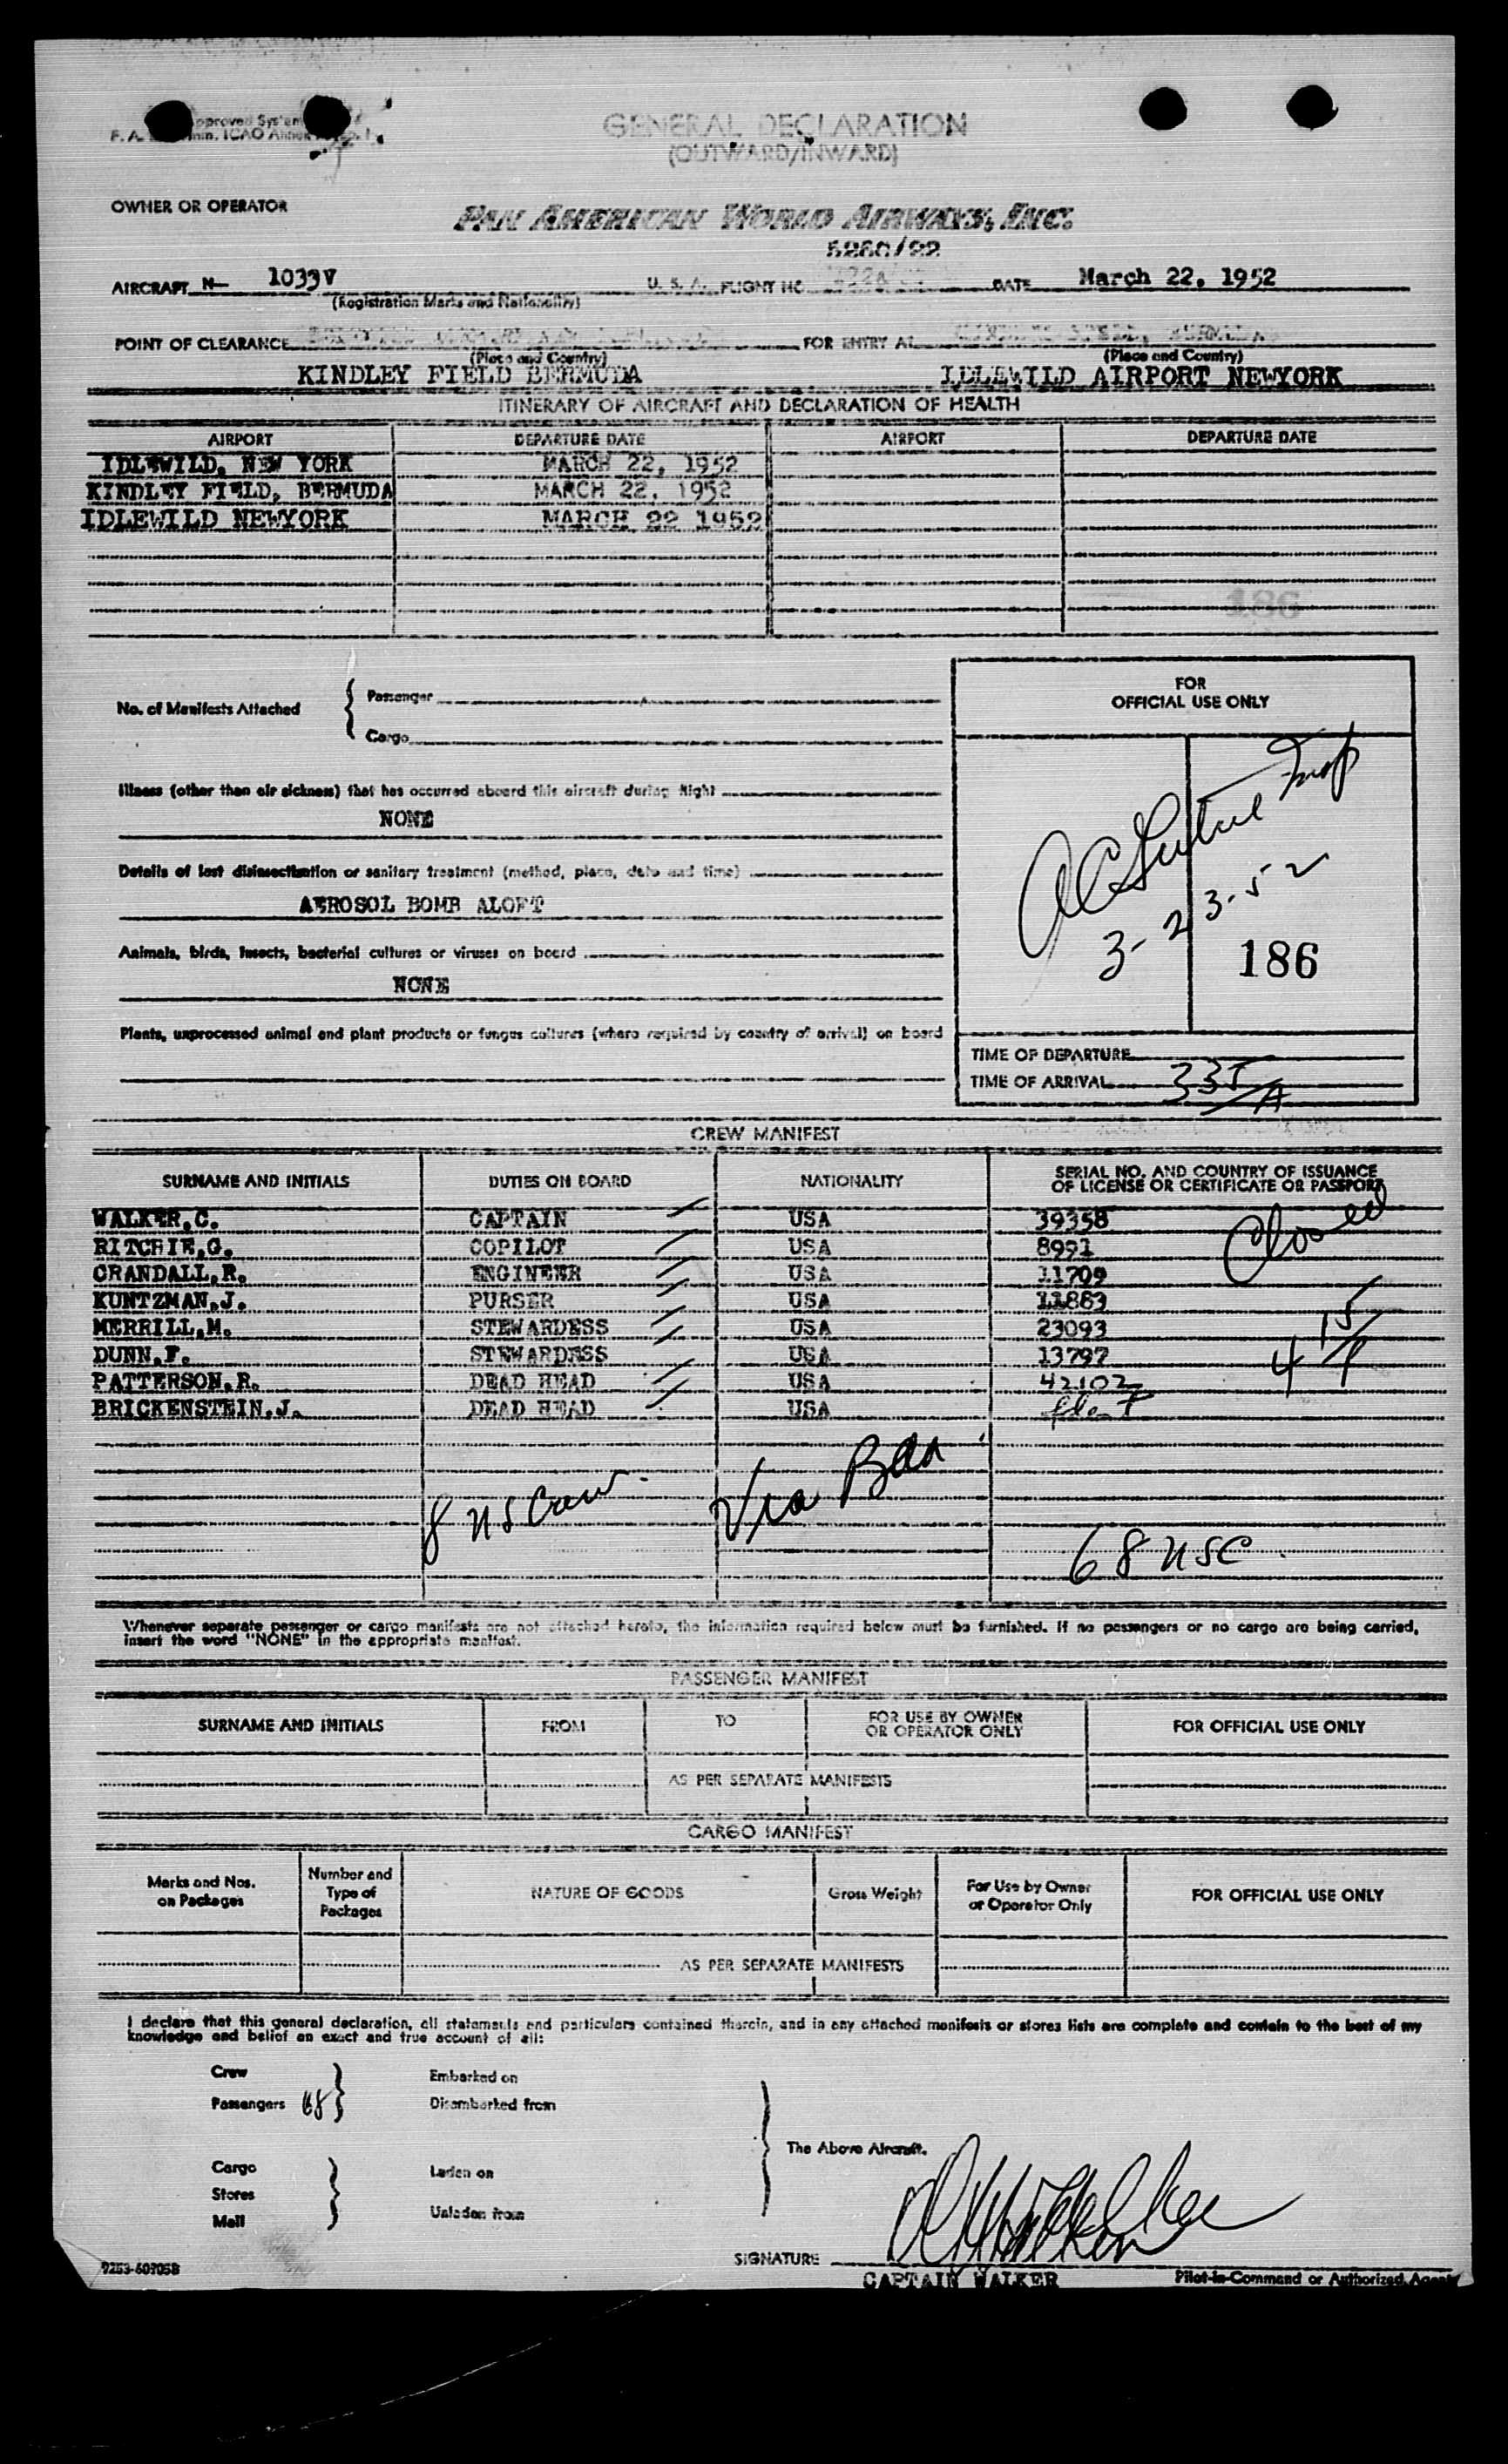 GENERAL DECLARATION
(OUTWARD/INWARD)
OWNER OR OPERATOR
PAN AMERICAN WORLD AIRWAYS, INC.
AIRCRAFT N— 1033V U. S. A. FLIGHT NO. DATE March 22, 1952
(Registration Marks and Nationality)
POINT OF CLEARANCE FOR ENTRY AT
(Place and Country) (Place and Country)
KINDLEY FIELD BERMUDA IDLEWILD AIRPORT NEWYORK
ITINERARY OF AIRCRAFT AND DECLARATION OF HEALTH
AIRPORT DEPARTURE DATE AIRPORT DEPARTURE DATE
IDLEWILD, NEW YORK MARCH 22, 1952
KINDLEY FIELD, BERMUDA MARCH 22, 1952
IDLEWILD NEWYORK MARCH 22 1952
186
No. of Manifests Attached
Passenger
Cargo
FOR
OFFICIAL USE ONLY
Illness (other than air sickness) that has occurred aboard this aircraft during flight
NONE
Details of last disinsectization or sanitary treatment (method, place, date and time)
AEROSOL BOMB ALOFT
3-23-52
Animals, birds, insects, bacterial cultures or viruses on board
NONE
186
Plants, unprocessed animal and plant products or fungus cultures (where required by country of arrival) on board
TIME OF DEPARTURE
TIME OF ARRIVAL 335/A
CREW MANIFEST
SURNAME AND INITIALS DUTIES ON BOARD NATIONALITY SERIAL NO. AND COUNTRY OF ISSUANCE
OF LICENSE OR CERTIFICATE OR PASSPORT
WALKER,C. CAPTAIN USA 39358
RITCHIE,G. COPILOT USA 8991 Closed
CRANDALL,R. ENGINEER USA 11709
KUNTZMAN,J. PURSER USA 11863
MERRILL,M. STEWARDESS USA 23093
DUNN,F. STEWARDESS USA 13797 4 15/P
PATTERSON,R. DEAD HEAD USA 42102
BRICKENSTEIN,J. DEAD HEAD USA
8 US Crew. Via Bda
68 USC.
Whenever separate passenger or cargo manifests are not attached hereto, the information required below must be furnished. If no passengers or no cargo are being carried,
insert the word "NONE" in the appropriate manifest.
PASSENGER MANIFEST
SURNAME AND INITIALS FROM TO FOR USE BY OWNER
OR OPERATOR ONLY FOR OFFICIAL USE ONLY
AS PER SEPARATE MANIFESTS
CARGO MANIFEST
Marks and Nos.
on Packages
Number and
Type of
Packages
NATURE OF GOODS
Gross Weight
For Use by Owner
or Operator Only
FOR OFFICIAL USE ONLY
AS PER SEPARATE MANIFESTS
I declare that this general declaration, all statements and particulars contained therein, and in any attached manifests or stores lists are complete and contain to the best of my
knowledge and belief an exact and true account of all:
Crew Embarked on
Passengers 68 Disembarked from
The Above Aircraft.
Cargo Laden on
Stores
Mail Unladen from
SIGNATURE
CAPTAIN WALKER Pilot-in-Command or Authorized Agent